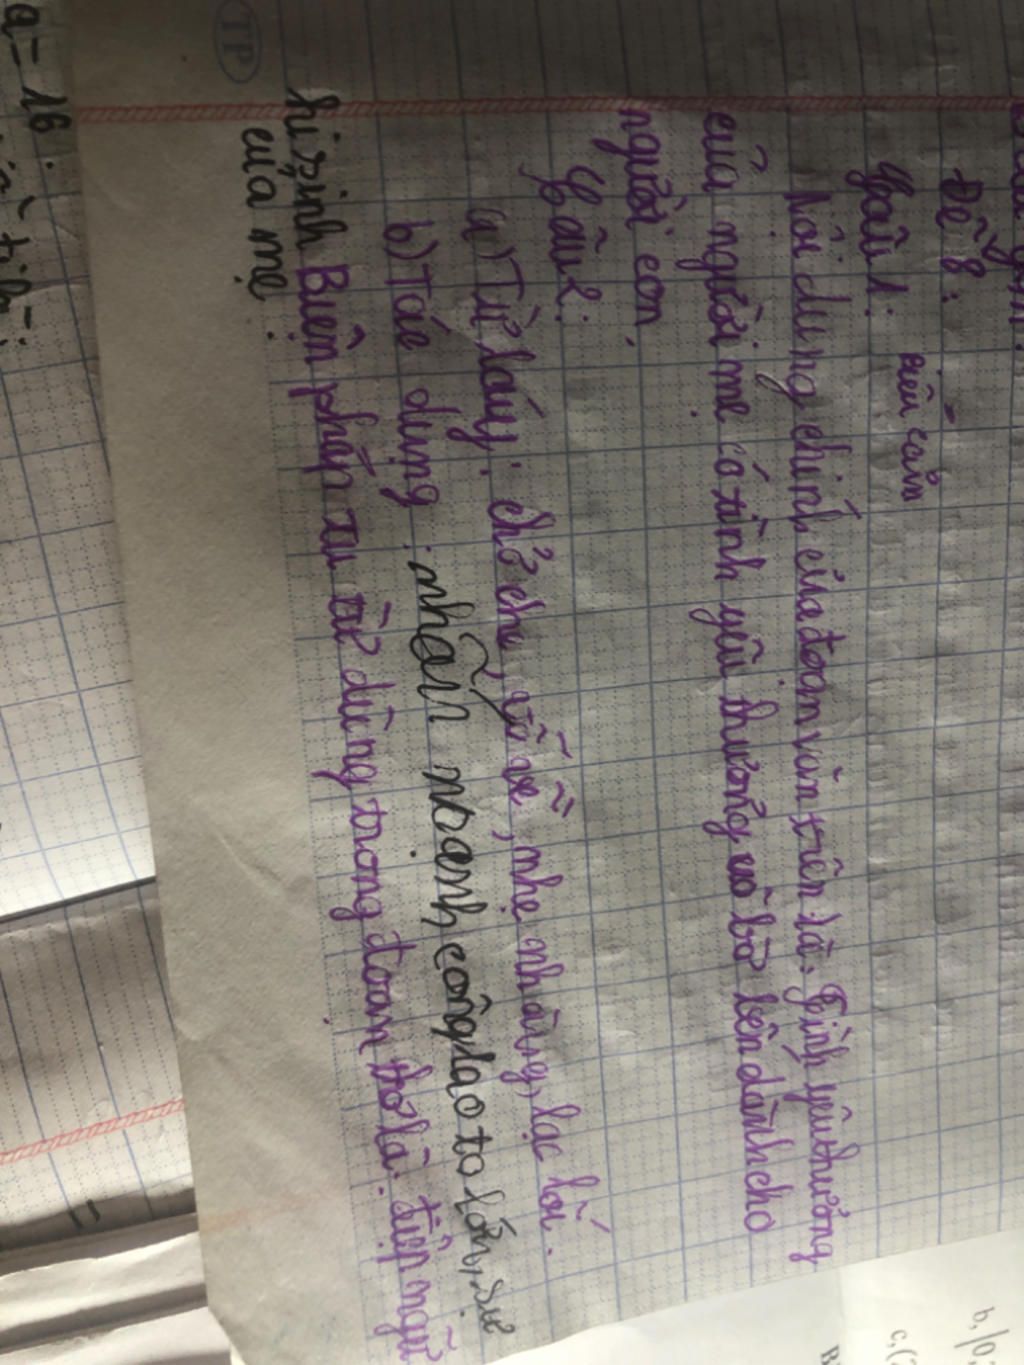 Đề 8:
biểu cảm
Câu 1:
Nội dung chính của đoạn văn trên là: Tình yêu thương
của người mẹ có tình yêu thương vô bờ bến dành cho
người con
Câu 2:
a) Từ láy: chở che, vỗ về, nhẹ nhàng, lạc lối.
b) Tác dụng: nhấn mạnh, công lao to lớn, sự
Biện pháp tu từ dùng trong đoạn thơ là: điệp ngữ
hi sinh
của mẹ.
TP
a = 16
b,
c,